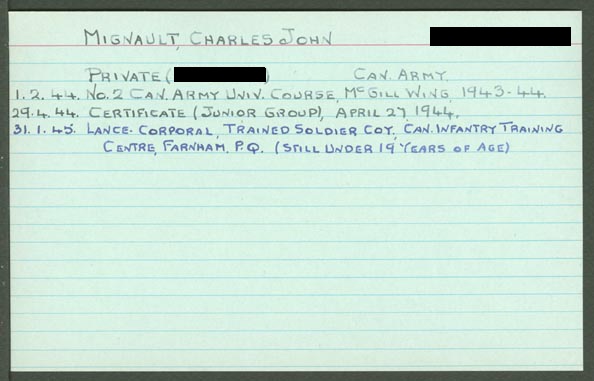 MIGNAULT, CHARLES JOHN
PRIVATE ( ) CAN. ARMY.
1. 2. 44. No. 2 CAN. ARMY UNIV. COURSE, McGILL WING, 1943-44.
29. 4. 44. CERTIFICATE (JUNIOR GROUP), APRIL 27, 1944.
31. 1. 45. LANCE-CORPORAL, TRAINED SOLDIER COY, CAN. INFANTRY TRAINING
CENTRE, FARNHAM, P.Q. (STILL UNDER 19 YEARS OF AGE)